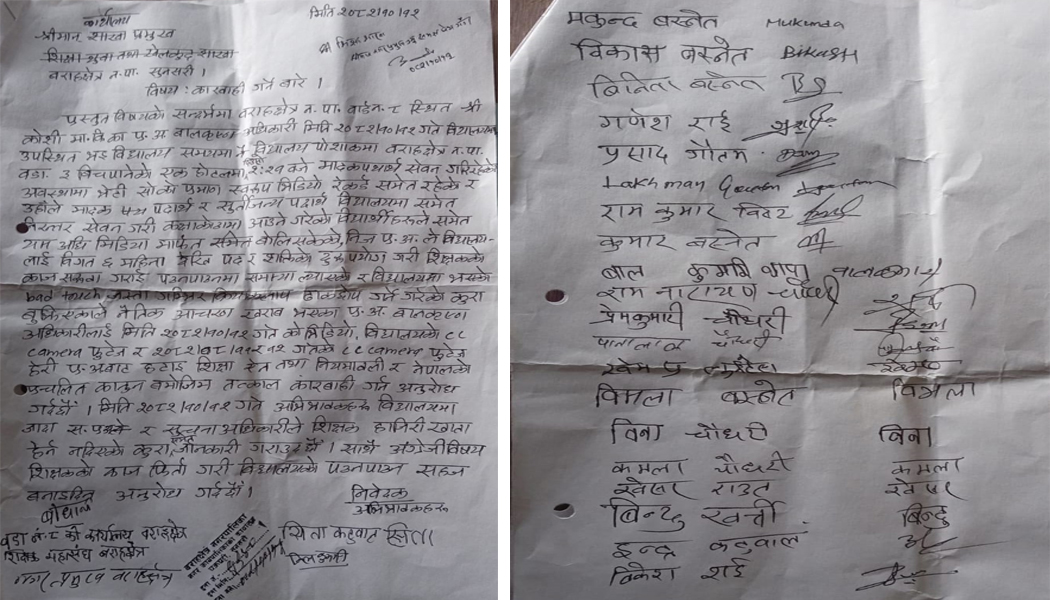 कार्यालय
मिति २०८२/१०/१२
श्रीमान शाखा प्रमुख
शिक्षा युवा तथा खेलकुद शाखा
वराहक्षेत्र न.पा. सुनसरी ।
विषय: कारवाही गर्ने बारे ।
प्रस्तुत विषयको सन्दर्भमा वराहक्षेत्र न.पा. वार्ड नं. ८ स्थित श्री
कोशी मा.वि.का प्र.अ बालकृष्ण अधिकारी मिति २०८२/१०/१२ गते विद्यालयमा
उपस्थित भइ विद्यालय समयमा नै विद्यालय पोशाकमा वराहक्षेत्र न.पा.
वडा. ३ स्थित एक होटलमा १:२१ बजे मादकपदार्थ सेवन गरिरहेको
अवस्थामा भेटी सोको प्रमाण स्वरुप भिडियो रेकर्ड समेत रहेको र
उहाँले मादक पदार्थ र सुर्तीजन्य पदार्थ विद्यालयमा समेत
निरन्तर सेवन गरी कक्षाकोठामा आउने गरेको विद्यार्थीहरुले समेत
यस अघि मिडिया मार्फत समेत बोलिसकेको, निज प्र.अ. ले विद्यालय-
लाई विगत ६ महिना देखि पद र शक्तिको दुरुपयोग गरी शिक्षकको
काज सरुवा गराई पठनपाठनमा समस्या ल्याएको र विद्यालयमा भएको
bad touch जस्ता गम्भिर क्रियाकलाप ढाकछोप गर्ने गरेको कुरा
बुझिएकाले नैतिक आचरण खराब भएका प्र.अ. बालकृष्ण
अधिकारीलाई मिति २०८२/१०/१२ गते को भिडियो, विद्यालयको CC
camera फुटेज र २०८२ गतेको CC camera फुटेज
हेरी प्र.अबाट हटाइ शिक्षा ऐन तथा नियमावली र नेपालको
प्रचलित कानुन बमोजिम तत्काल कारवाही गर्न अनुरोध
गर्दछौं । मिति २०८२/१०/१२ गते अभिभावकहरु विद्यालयमा
जादा स.प्रअ र सूचना अधिकारीले शिक्षक हाजिरी रखाता
हेर्न नदिएको कुरा समेत जानकारी गराउदछौं । साथै अंग्रेजी विषय
शिक्षकको काज फिर्ता गरी विद्यालयको पठनपाठन सहज
बनाइदिन अनुरोध गर्दछौं ।
बोधार्थ
निवेदक
अभिभावकहरु
वडा नं. ८ को कार्यालय वराहक्षेत्र
शिक्षक महासंघ वराहक्षेत्र
सिता कटुवाल सिता
मकुन्द बस्नेत Mukunda
विकास बस्नेत Bikash
बिनिता बस्नेत
गणेश राई
प्रसाद गौतम
Lakshman Gautam
राम कुमार
कुमार बस्नेत
बाल कुमारी थापा बालकुमारी
राम नारायण चौधरी
प्रेमकुमारी चौधरी
चौधरी
खेम प्र
विमला बस्नेत विमला
बिना चौधरी बिना
कमला चौधरी कमला
राउत
बिन्दु खत्री बिन्दु
इन्द्र कटुवाल
विकेश राई